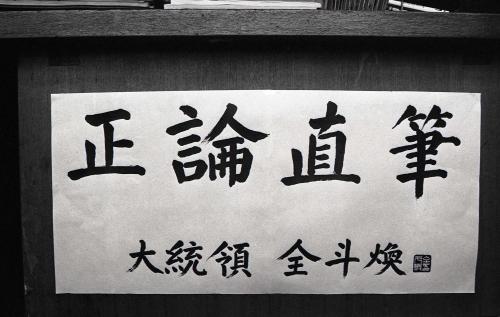 正論直筆
大統領 全斗煥